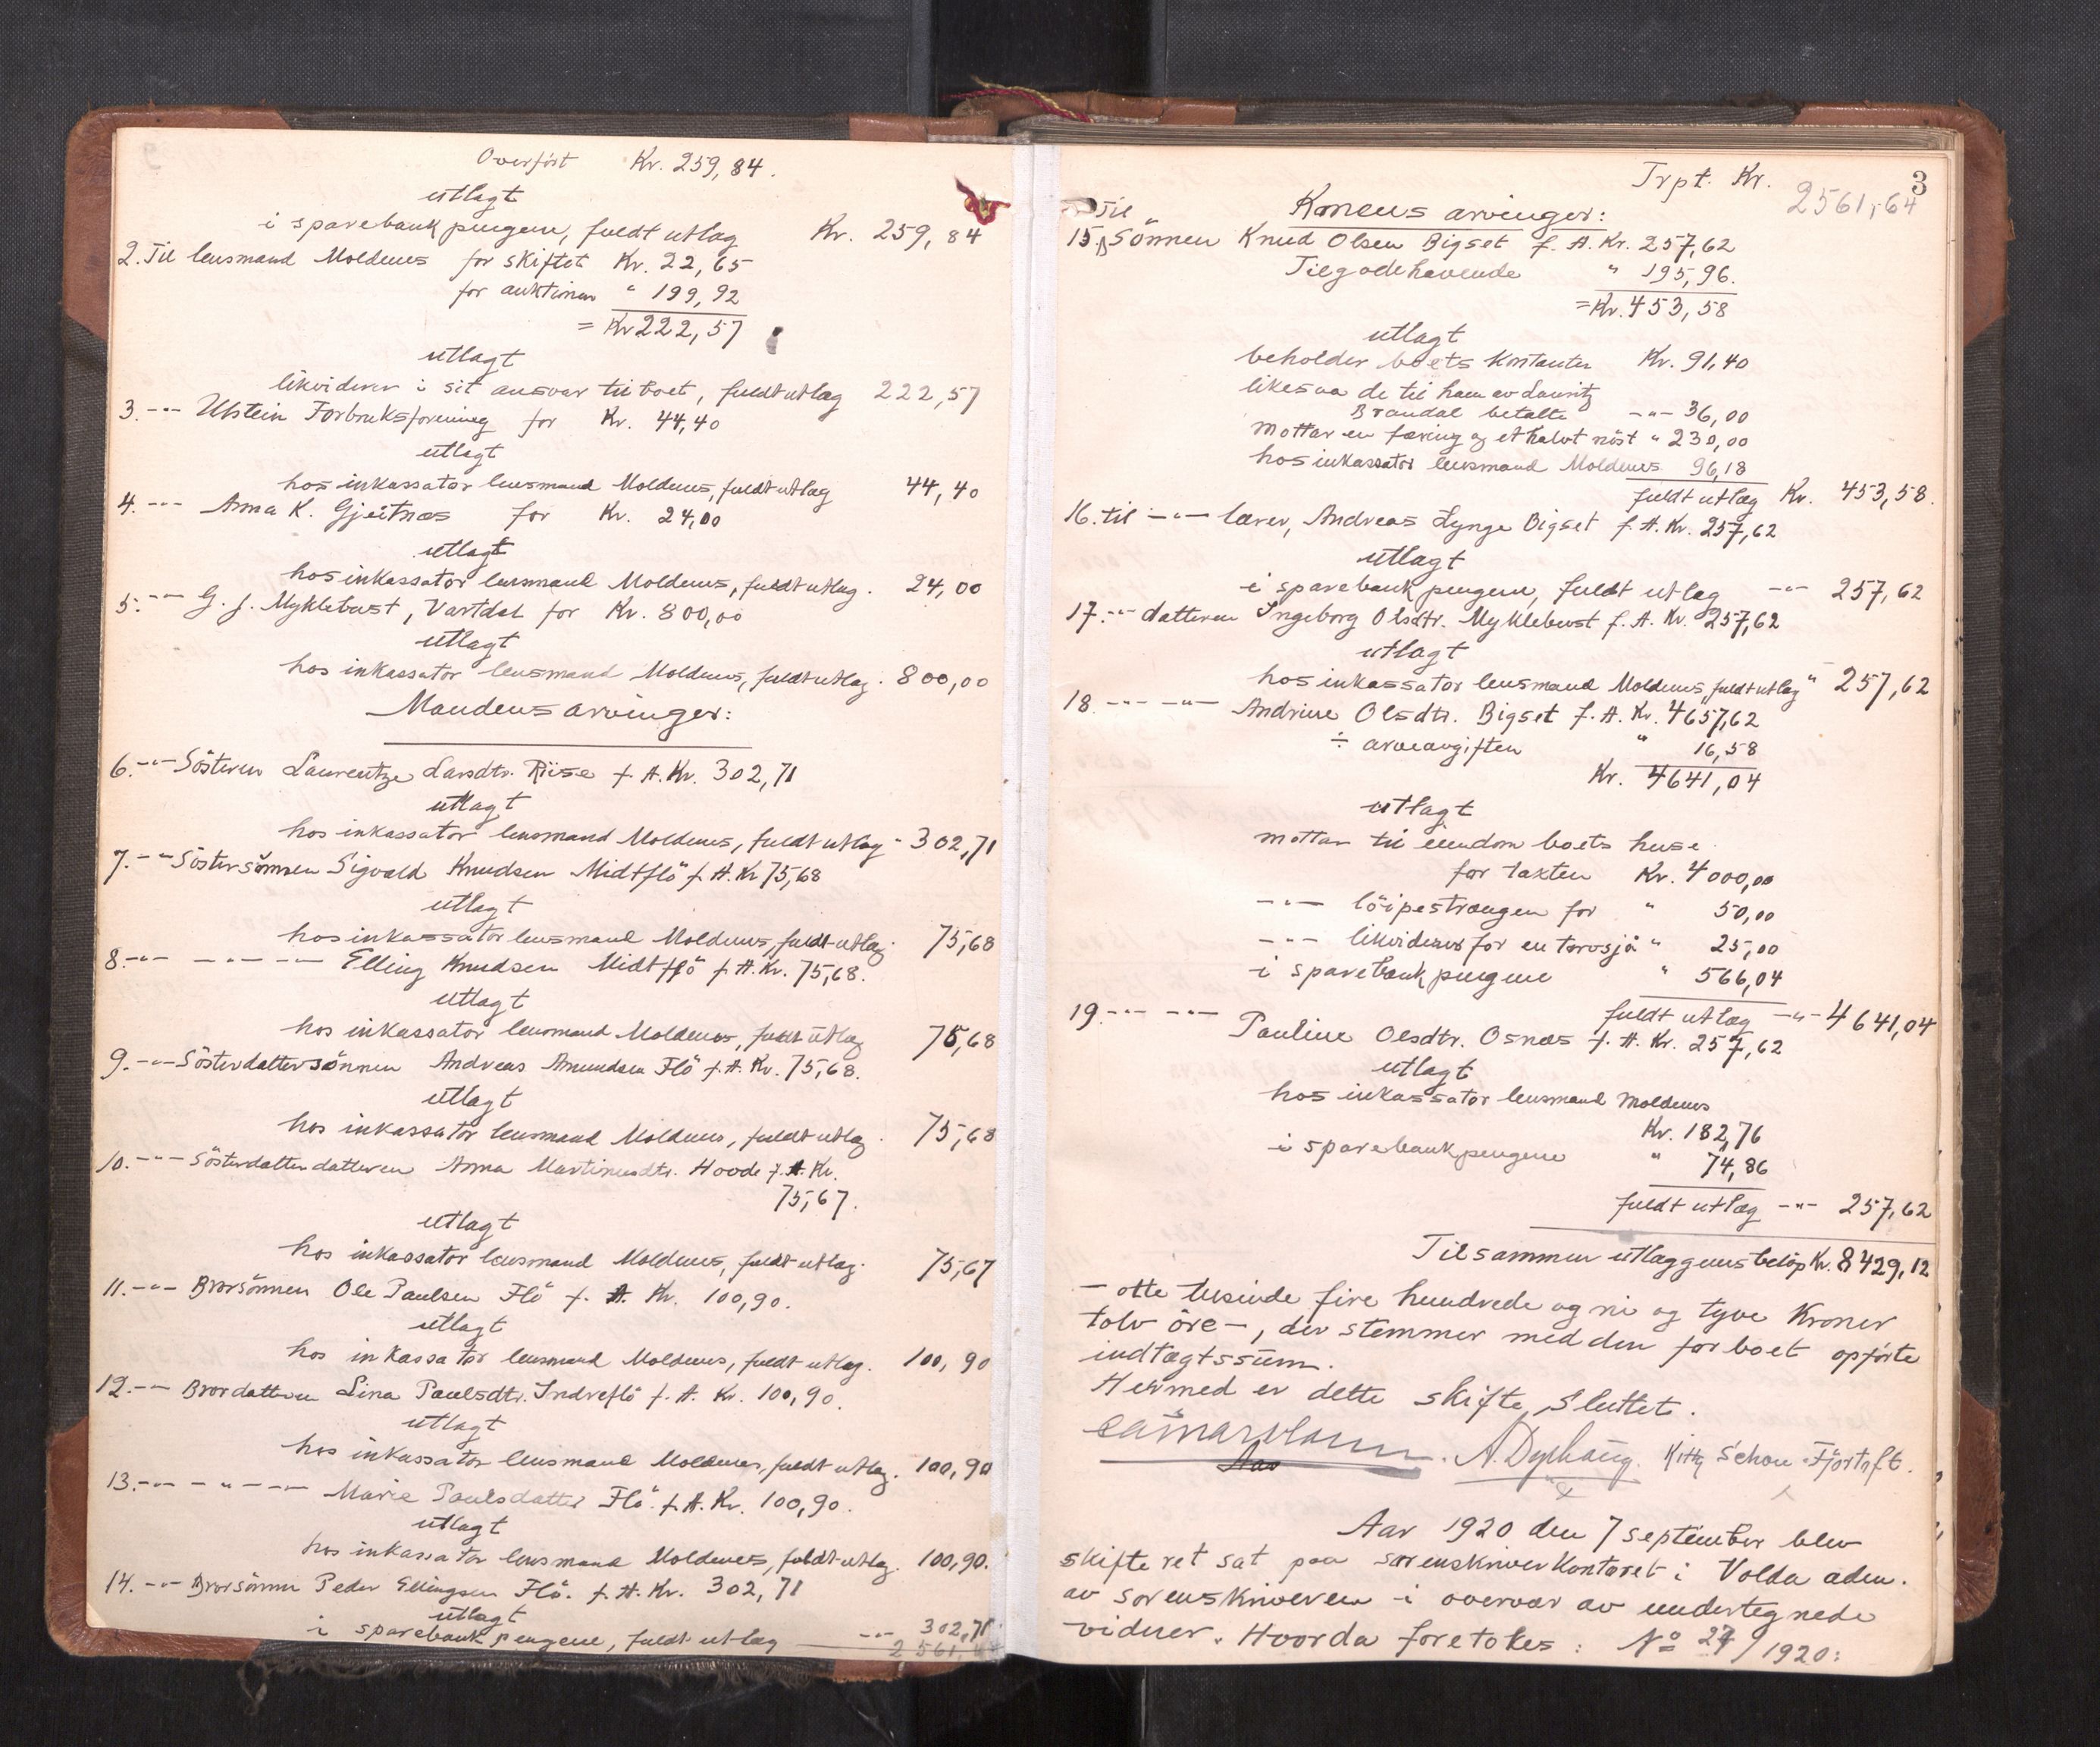 Overført Kr. 259,84.
utlagt
i sparebankpengene, fuldt utlæg Kr. 259,84
2. Til lensmand Moldenes for skiftet Kr. 22,65
for auktionen " 199,92
= Kr 222,57
utlagt
likviderer i sit ansvar til boet, fuldt utlæg 222,57
3. -"- Ulstein Forbruksforening for Kr. 44,40
utlagt
hos inkassator lensmand Moldenes, fuldt utlæg 44,40
4. -"- Anna K. Gjeitnæs for Kr. 24,00
utlagt
hos inkassator lensmand Moldenes, fuldt utlæg. 24,00
5. -"- G. J. Myklebust, Vartdal for Kr. 800,00
utlagt
hos inkassator lensmand Moldenes, fuldt utlæg. 800,00
Mandens arvinger:
6. -"- Søsteren Laurentze Larsdtr. Riise f. A. Kr. 302,71
utlagt
hos inkassator lensmand Moldenes, fuldt utlæg - 302,71
7. -"- Søstersønnen Sigvald Knudsen Midtflö f. A. Kr 75,68
utlagt
hos inkassator lensmand Moldenes, fuldt utlæg. 75,68
8. -"- -"- -"- Elling Knudsen Midtflö f. A. Kr. 75,68.
utlagt
hos inkassator lensmand Moldenes, fuldt utlæg 75,68
9. -"- Søsterdattersönnen Andreas Amundsen Flö f. A. Kr. 75,68.
utlagt
hos inkassator lensmand Moldenes, fuldt utlæg. 75,68
10. -"- Søsterdatterdatteren Anna Martinusdtr. Hovde f. A. Kr.
75,67.
utlagt
hos inkassator lensmand Moldenes, fuldt utlæg. 75,67
11. -"- Brorsönnen Ole Paulsen Flö f. A. Kr. 100,90.
utlagt
hos inkassator lensmand Moldenes, fuldt utlæg. 100,90
12. -"- Brordatteren Lina Paulsdtr. Indreflö f. A. Kr. 100,90.
utlagt
hos inkassator lensmand Moldenes, fuldt utlæg. 100,90
13. -"- -"- -"- Marie Paulsdatter Flö. f. A. Kr. 100,90.
utlagt
hos inkassator lensmand Moldenes, fuldt utlæg. 100,90.
14. -"- Brorsönnen Peder Ellingsen Flö. f. A. Kr. 302,71
utlagt
i sparebankpengene, fuldt utlæg -"- 302,71
2561,64
3
Trpt. Kr. 2561,64
Til Konens arvinger:
15. Sönnen Knud Olsen Bigset f. A. Kr. 257,62
Tilgodehavende " 195,96.
= Kr. 453,58
utlagt
beholder boets kontanter Kr. 91,40
likesaa de til ham av Lauritz
Brandal betalte -"- 36,00
mottar en færing og et halvt nöst " 230,00
hos inkassator lensmand Moldenes 96,18
fuldt utlæg Kr. 453,58.
16. til -"- lærer, Andreas Lynge Bigset f. A. Kr. 257,62
utlagt
i sparebankpengene, fuldt utlæg -"- 257,62
17. -"- datteren Ingeborg Olsdtr. Myklebust f. A. Kr. 257,62
utlagt
hos inkassator lensmand Moldenes, fuldt utlæg " 257,62
18. -"- -"- Andrine Olsdtr. Bigset f. A. Kr. 4657,62
÷ arveavgiften " 16,58
Kr. 4641,04
utlagt
mottar til eiendom boets huse
for taxten Kr. 4000,00
-"- löipestrengen for " 50,00
-"- likviderer for en torvsjå " 25,00
i sparebankpengene " 566,04
fuldt utlæg -"- 4641,04
19. -"- -"- Pauline Olsdtr. Osnes f. A. Kr. 257,62
utlagt
hos inkassator lensmand Moldenes
Kr. 182,76
i sparebankpengene " 74,86
fuldt utlæg -"- 257,62
Tilsammen utlæggenes belöp Kr. 8429,12
- otte tusinde fire hundrede og ni og tyve Kroner
tolv öre -, der stemmer med den for boet opförte
indtægtssum.
Hermed er dette skifte sluttet.
A. Dyrhaug. Kitty Schou Fjörtoft.
Aar
Aar 1920 den 7 september blev
skifteret sat paa sorenskriverkontoret i Volda adm.
av sorenskriveren i overvær av undertegnede
vidner. Hvorda foretokes: No 24/1920: